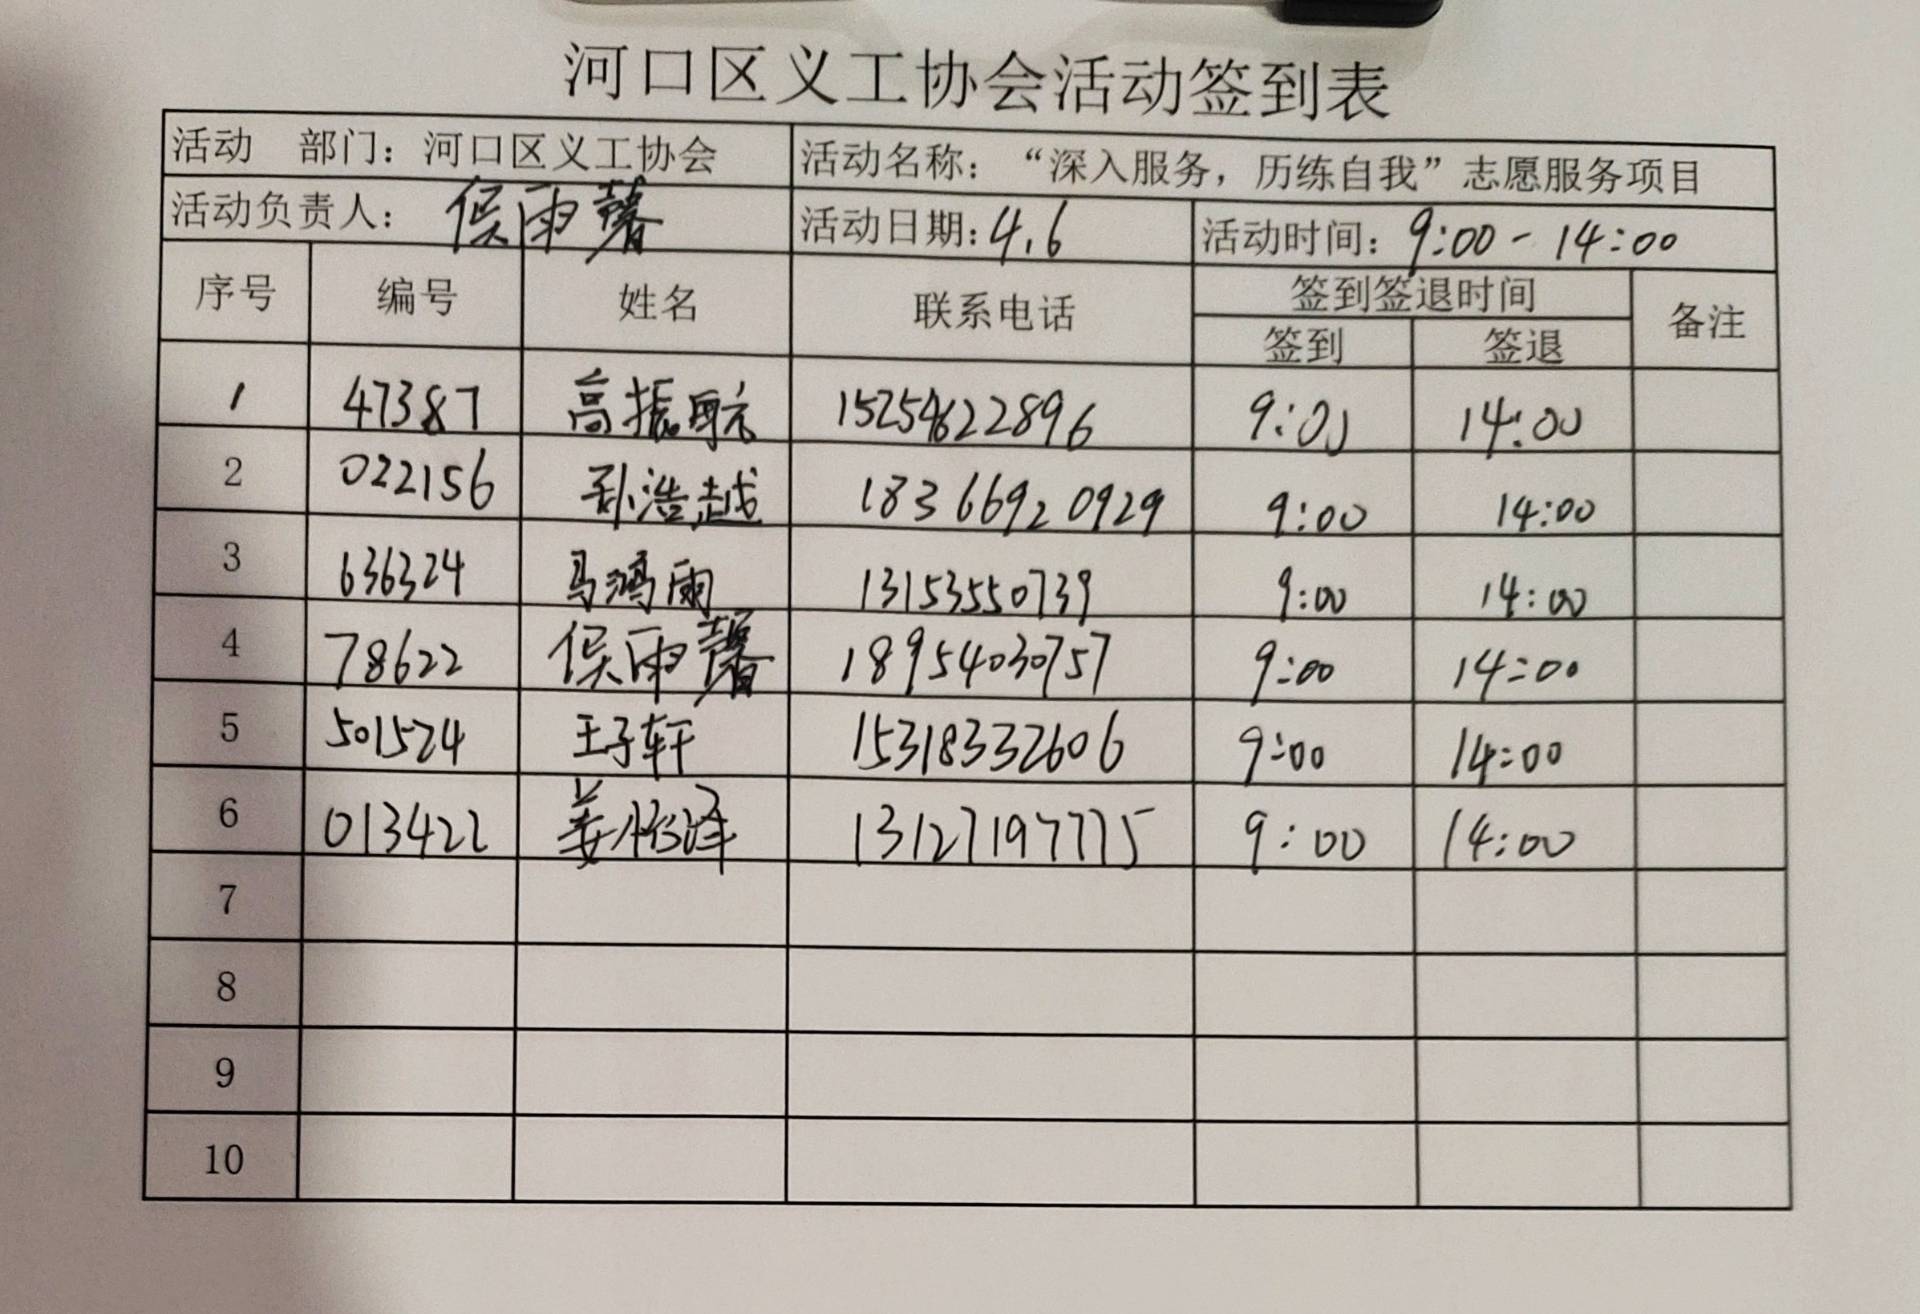 河口区义工协会活动签到表
活动 部门：河口区义工协会 活动名称：“深入服务，历练自我”志愿服务项目
活动负责人：侯雨馨 活动日期：4.6 活动时间：9:00-14:00
序号 编号 姓名 联系电话 签到签退时间 备注
签到 签退
1 47387 高振航 15254622896 9:00 14:00
2 022156 孙浩越 18366920929 9:00 14:00
3 636324 马鸿雨 13153550739 9:00 14:00
4 78622 侯雨馨 18954030757 9:00 14:00
5 501524 王子轩 15318332606 9:00 14:00
6 013422 姜 泽 13127197775 9:00 14:00
7
8
9
10